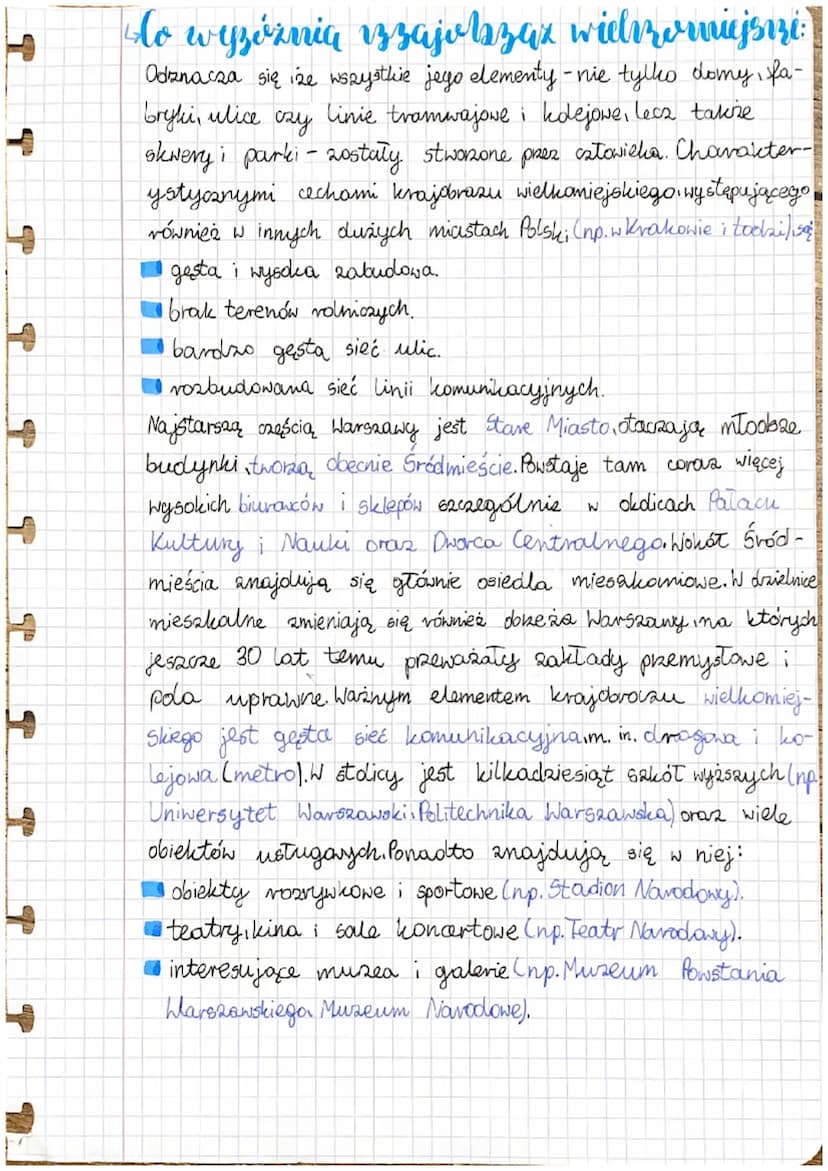 ↳Co wyróżnia krajobraz wielkomiejski:
Odznacza się że wszystkie jego elementy - nie tylko domy, fa-
bryki, ulice czy linie tramwajowe i kolejowe, lecz także
skwery i parki - zostały stworzone przez człowieka. Charakter-
ystycznymi cechami krajobrazu wielkomiejskiego, występującego
również w innych dużych miastach Polski, (np. w Krakowie i Łodzi), są:
gęsta i wysoka zabudowa.
brak terenów rolniczych.
bardzo gęsta sieć ulic.
rozbudowana sieć linii komunikacyjnych.
Najstarszą częścią Warszawy jest Stare Miasto, otaczają młodsze
budynki, tworzą obecnie Śródmieście. Powstaje tam coraz więcej
wysokich biurowców i sklepów szczególnie w okolicach Pałacu
Kultury i Nauki oraz Dworca Centralnego. Wokół Śród-
mieścia znajdują się głównie osiedla mieszkaniowe. W dzielnice
mieszkalne zmieniają się również obrzeża Warszawy, na których
jeszcze 30 lat temu przeważały zakłady przemysłowe i
pola uprawne. Ważnym elementem krajobrazu wielkomiej-
skiego jest gęsta sieć komunikacyjna, m. in. drogowa i ko-
lejowa (metro). W stolicy jest kilkadziesiąt szkół wyższych (np.
Uniwersytet Warszawski, Politechnika Warszawska) oraz wiele
obiektów usługowych. Ponadto znajdują się w niej:
obiekty rozrywkowe i sportowe (np. Stadion Narodowy).
teatry, kina i sale koncertowe (np. Teatr Narodowy).
interesujące muzea i galerie (np. Muzeum Powstania
Warszawskiego, Muzeum Narodowe).